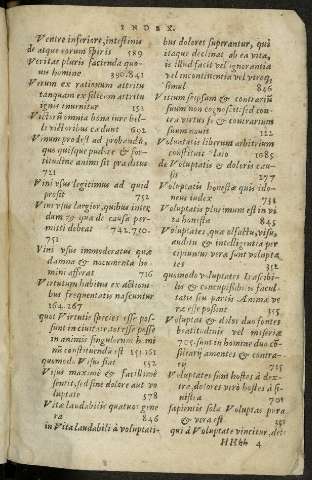 INDEX.
Ventre inferiore, intestinis
de atque eorum spiris 589
Veritas pluris facienda quo-
uis homine 390.841
Verum ex rationum attritu
tanquam ex silicum attritu
ignis inuenitur 152
Victori omnia bona iure bel-
li victoribus cadunt 602
Vinum prodest ad probandū,
quis quisque pudore & for-
titudine animi sit præditus
721
Vini vsus legitimus ad quid
prosit 752
Vini vsus largior, quibus inter
dum & qua de causa per-
mitti debeat 742.750.
751
Vini vsus immoderatus quæ
damna & nocumenta ho-
mini afferat 716
Virtutum habitus ex actioni-
bus frequentatis nascuntur
264.267
quot Virtutis species esse pos-
sunt in ciuitate, tot esse posse
in animis singulorum homi
nū constituendū est 151.161
quomodo Visus fiat 552
Visus maximè & facillimè
sentit, sed sine dolore aut vo
luptate 578
Vitæ laudabilis quatuor gene
ra 846
in Vita laudabili à voluptati-
bus dolores superantur, qui
itaque declinat ab ea vita,
is illud facit vel ignorantia
vel incontinentia vel vtroq;
simul 846
Vitium seipsum & contrariū
suum non cognoscit, sed con
tra virtus se & contrarium
suum nouit 122
Voluntatis liberum arbitrium
constituit 1085
de Voluptatis & doloris cau-
sis 277
Voluptatis honestæ quis ido-
neus iudex 731
Voluptatis plurimum est in vi
ta honesta 845
Voluptates, quæ olfactu, visu,
auditu & intelligentia per
cipiuntur veræ sunt volupta
tes 352
quomodo voluptates Irascibi-
lis & concupiscibilis facul-
tatis seu partis Animæ ve
ræ esse possint 315
Voluptas & dolor duo fontes
beatitudinis vel miseriæ
705. sunt in homine duo cō-
siliarij amentes & contra-
rij 715
Voluptates sunt hostes à dex-
tra, dolores verò hostes à si-
nistra 708
sapientis sola Voluptas pura
& vera est 350
qui à Voluptate vincitur, det-
HHhh 4